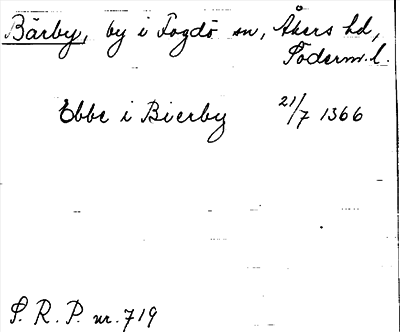 Bärby, by i Fogdö sn, Åkers hd,
Söderm. l.
Ebbe i Bierby 21/7 1366
S. R. P. nr. 719